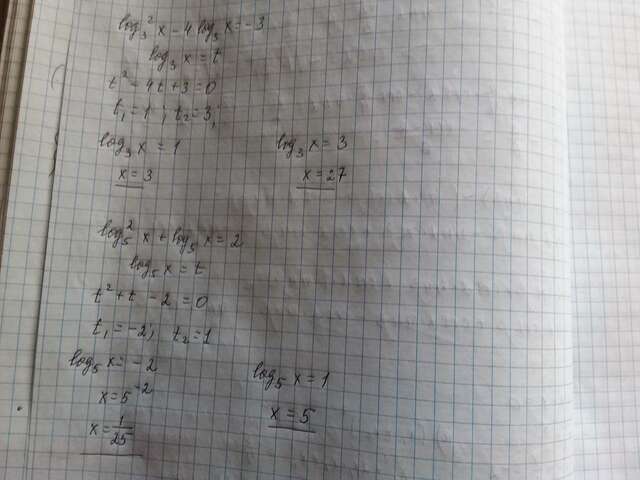 log₃² x - 4 log₃ x = -3
log₃ x = t
t² - 4t + 3 = 0
t₁ = 1 ; t₂ = 3;
log₃ x = 1 log₃ x = 3
x = 3 x = 27
log₅² x + log₅ x = 2
log₅ x = t
t² + t - 2 = 0
t₁ = -2; t₂ = 1
log₅ x = -2 log₅ x = 1
x = 5⁻² x = 5
x = 1/25